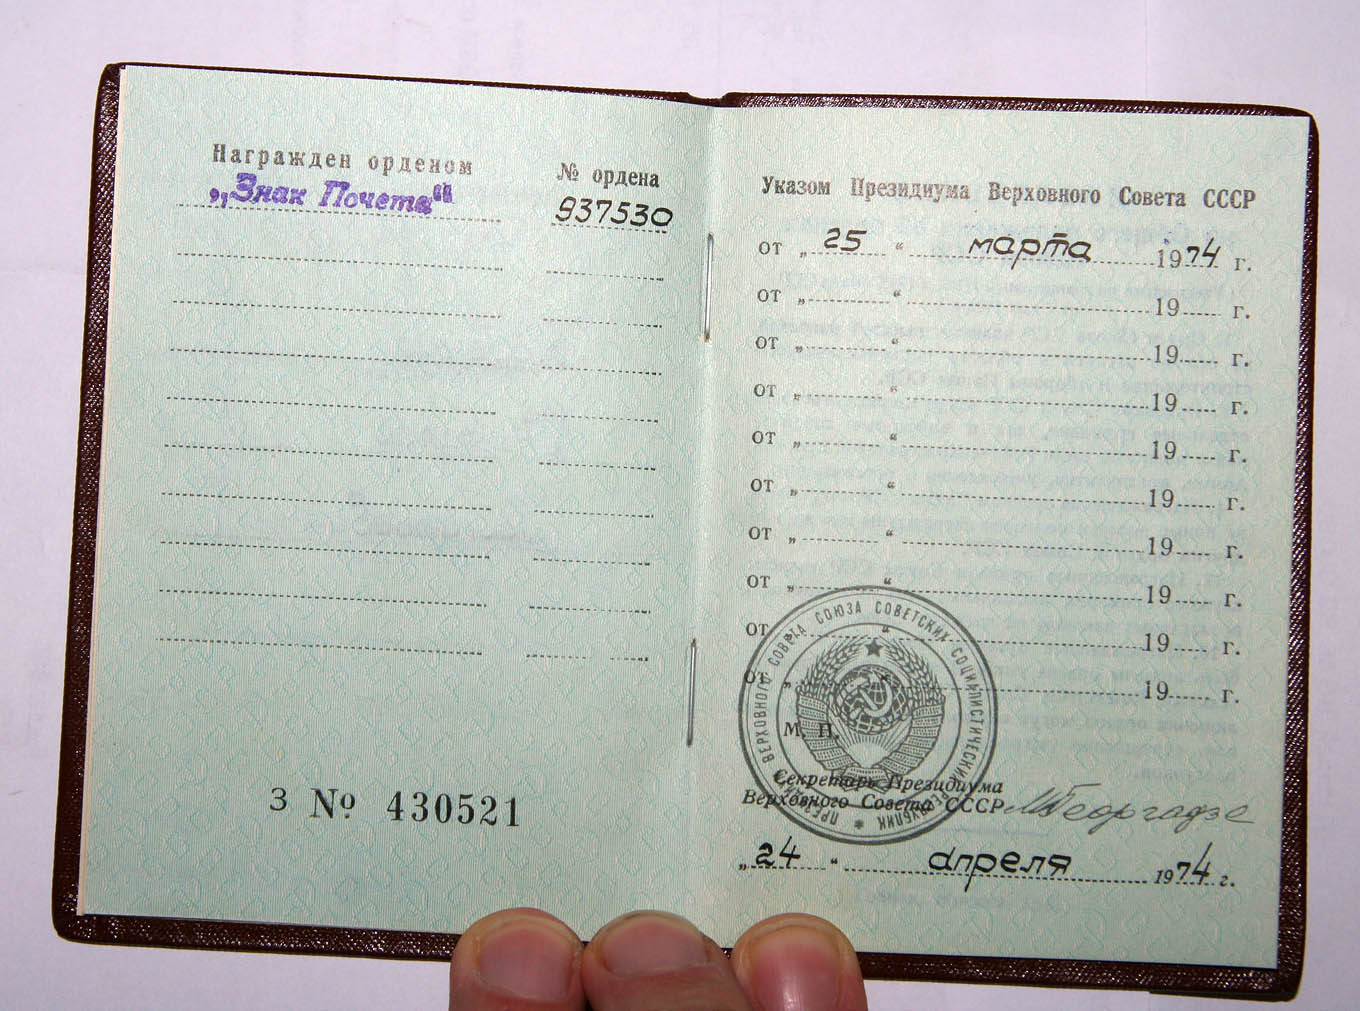 Награжден орденом
„Знак Почета“
№ ордена
937530
З № 430521
Указом Президиума Верховного Совета СССР
от „ 25 “ марта 1974 г.
от „ “ 19 г.
от „ “ 19 г.
от „ “ 19 г.
от „ “ 19 г.
от „ “ 19 г.
от „ “ 19 г.
от „ “ 19 г.
от „ “ 19 г.
от „ “ 19 г.
ПРЕЗИДИУМ ВЕРХОВНОГО СОВЕТА СОЮЗА СОВЕТСКИХ СОЦИАЛИСТИЧЕСКИХ РЕСПУБЛИК
М. П.
Секретарь Президиума
Верховного Совета СССР МГеоргадзе
„ 24 “ апреля 1974 г.